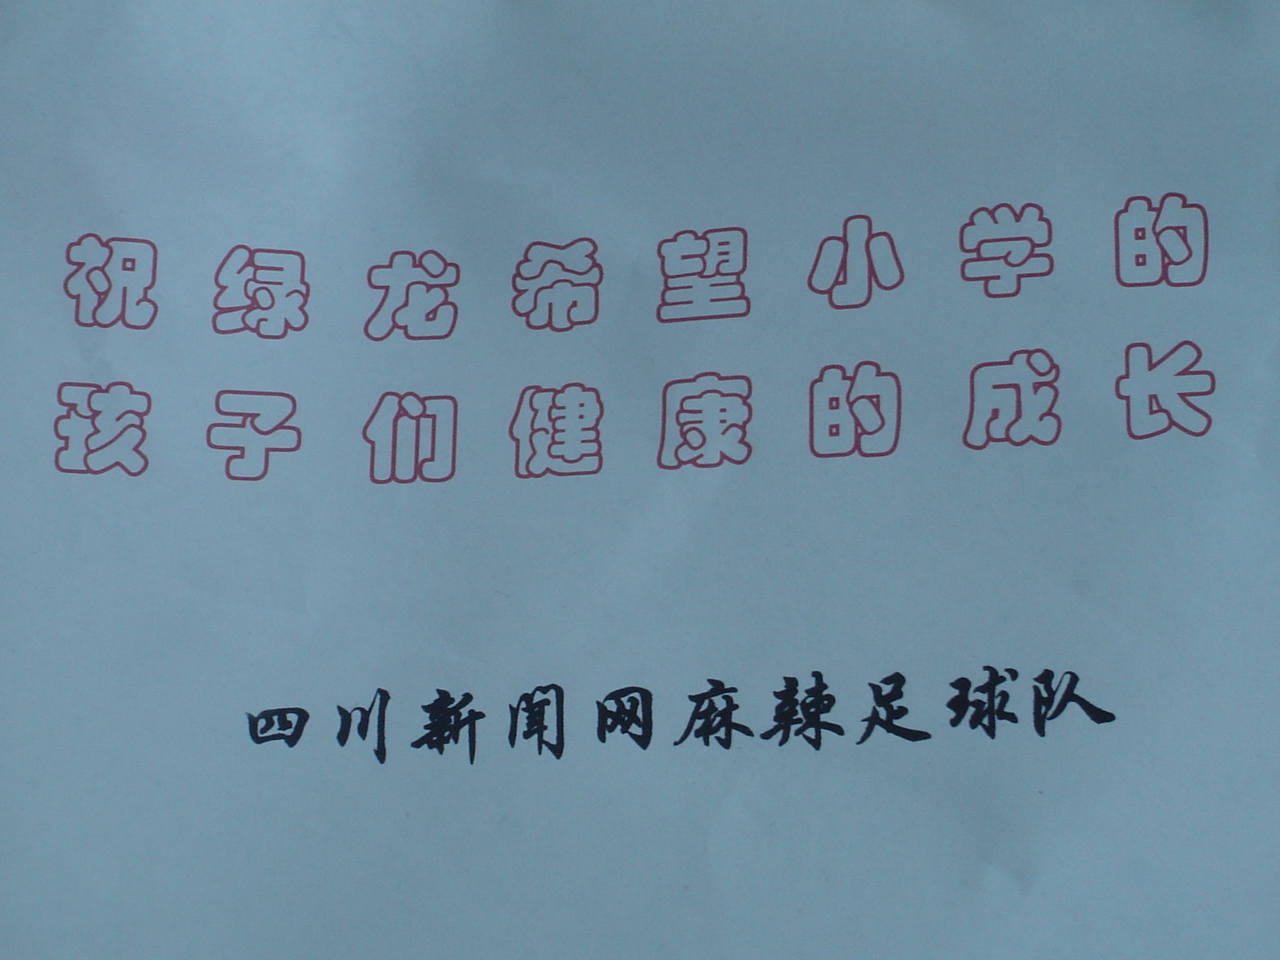 祝绿龙希望小学的
孩子们健康的成长
四川新闻网麻辣足球队